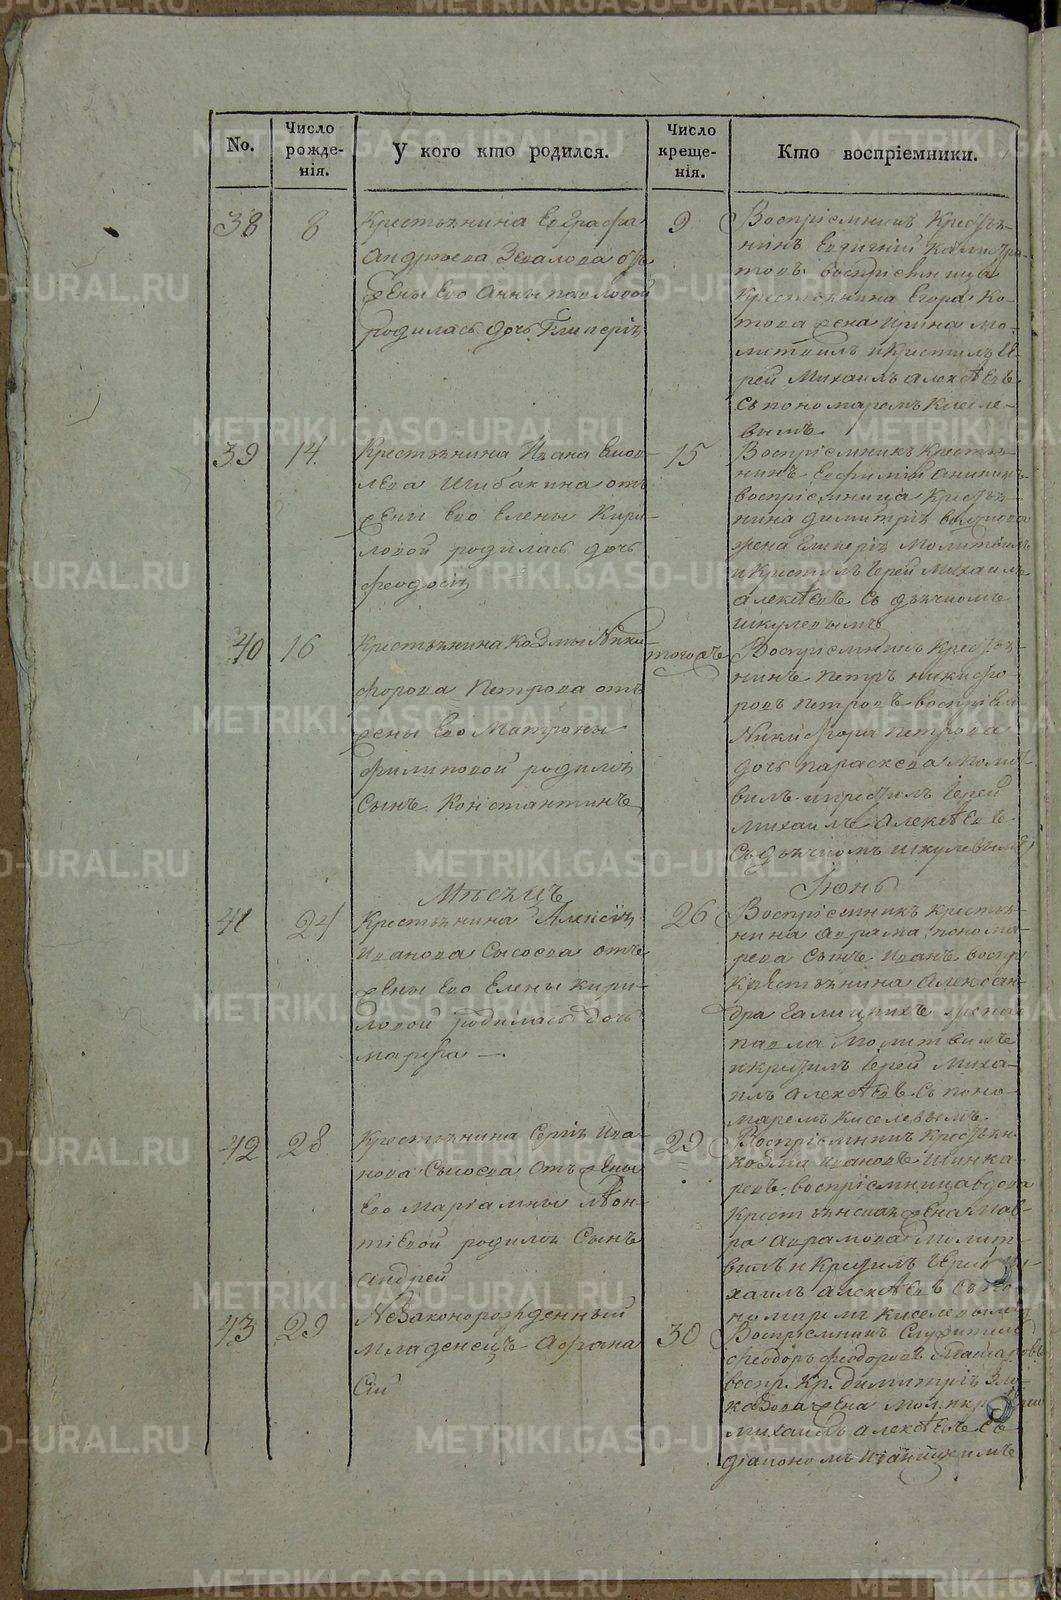 No.
Число рожде-нія.
У кого кто родился.
Число креще-нія.
Кто воспріемники.
38
8
Крестьянина Евграфа
Андреева отъ
жены Его Анны Павловой
родилась дочь Гликерія
9
Воспріемникъ Крестья-
нинъ Евгений
воспріемница
Крестьянина Егора Ко-
това жена Ирина мо-
литвилъ и Крестилъ Іе-
рей Михаилъ Алексѣевъ
съ пономаремъ Киселе-
вымъ
39
14.
Крестьянина Ивана
Шибакина отъ
жены Его Елены Кири-
ловой родилась дочь
Феодосія
15
Воспріемникъ Крестья-
нинъ Евфимій Аникинъ
воспріемница Крестья-
нина Димитрія
жена Гликерія молитвилъ
и Крестилъ Іерей Михаилъ
Алексѣевъ съ дьячкомъ
Шкулевымъ
40
16
Крестьянина Козмы Ники-
форова Петрова отъ
жены Его Матроны
Филиповой родился
Сынъ Константинъ
тогожъ
Воспріемникъ Крестья-
нинъ Петръ Никифо-
ровъ Петровъ воспріем
Никифора Петрова
дочь Параскева Молит-
вилъ и крестилъ Іерей
Михаилъ Алексѣевъ
Съ дьячкомъ Шкулевымъ
Мѣсяцъ
Іюнь
41
24
Крестьянина Алексія
Иванова Сысоева отъ
жены Его Елены Кири-
ловой родилась дочь
Марфа —.
26
Воспріемникъ Крестья-
нина Аврама Понома-
рева Сынъ Иванъ воспр
Крестьянина Алексан-
дра Галицкихъ жена
Павла Молитвилъ
и крестилъ Іерей Миха-
илъ Алексѣевъ съ поно-
маремъ Киселевымъ
42
28
Крестьянина Сергія Ива-
нова Сысоева отъ жены
Его Маріамны Леон-
тіевой родился Сынъ
Андрей
29
Воспріемникъ Крестьян
Козма Ивановъ Шинка-
ревъ, воспріемница вдова
Крестьянская жена Мав-
ра Аврамова Молит-
вилъ и Крестилъ Іерей Ми-
хаилъ Алексѣевъ съ по-
номаремъ Киселевымъ
43
29
Незаконорожденный
младенецъ Афана
Сій
30
Воспріемникъ Служитель
Феодоръ Феодоровъ
воспр. Кр. Димитрія Зло-
казова жена Мол. и кр
Михаилъ Алексѣевъ съ
діакономъ
METRIKI.GASO-URAL.RU